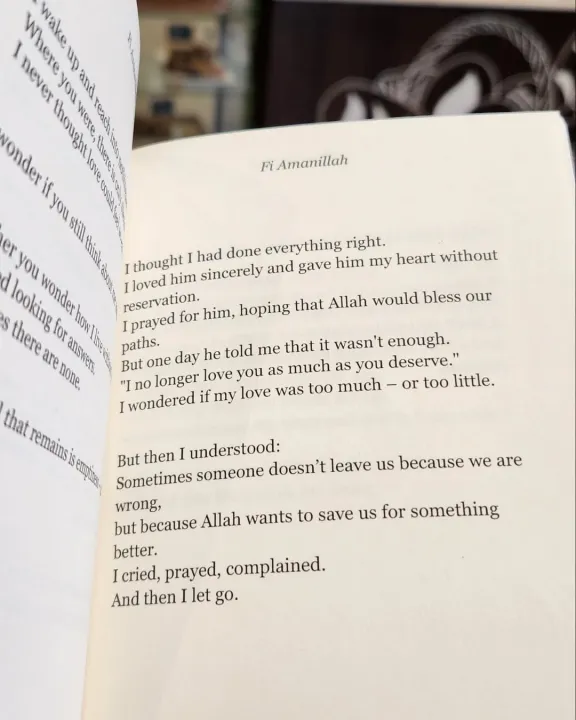 I wake up and reach into
Where you were, there is
I never thought love could
wonder if you still think about
you wonder how I
looking for answers.
there are none.
that remains is
Fi Amanillah
I thought I had done everything right.
I loved him sincerely and gave him my heart without
reservation.
I prayed for him, hoping that Allah would bless our
paths.
But one day he told me that it wasn't enough.
"I no longer love you as much as you deserve."
I wondered if my love was too much – or too little.
But then I understood:
Sometimes someone doesn't leave us because we are
wrong,
but because Allah wants to save us for something
better.
I cried, prayed, complained.
And then I let go.